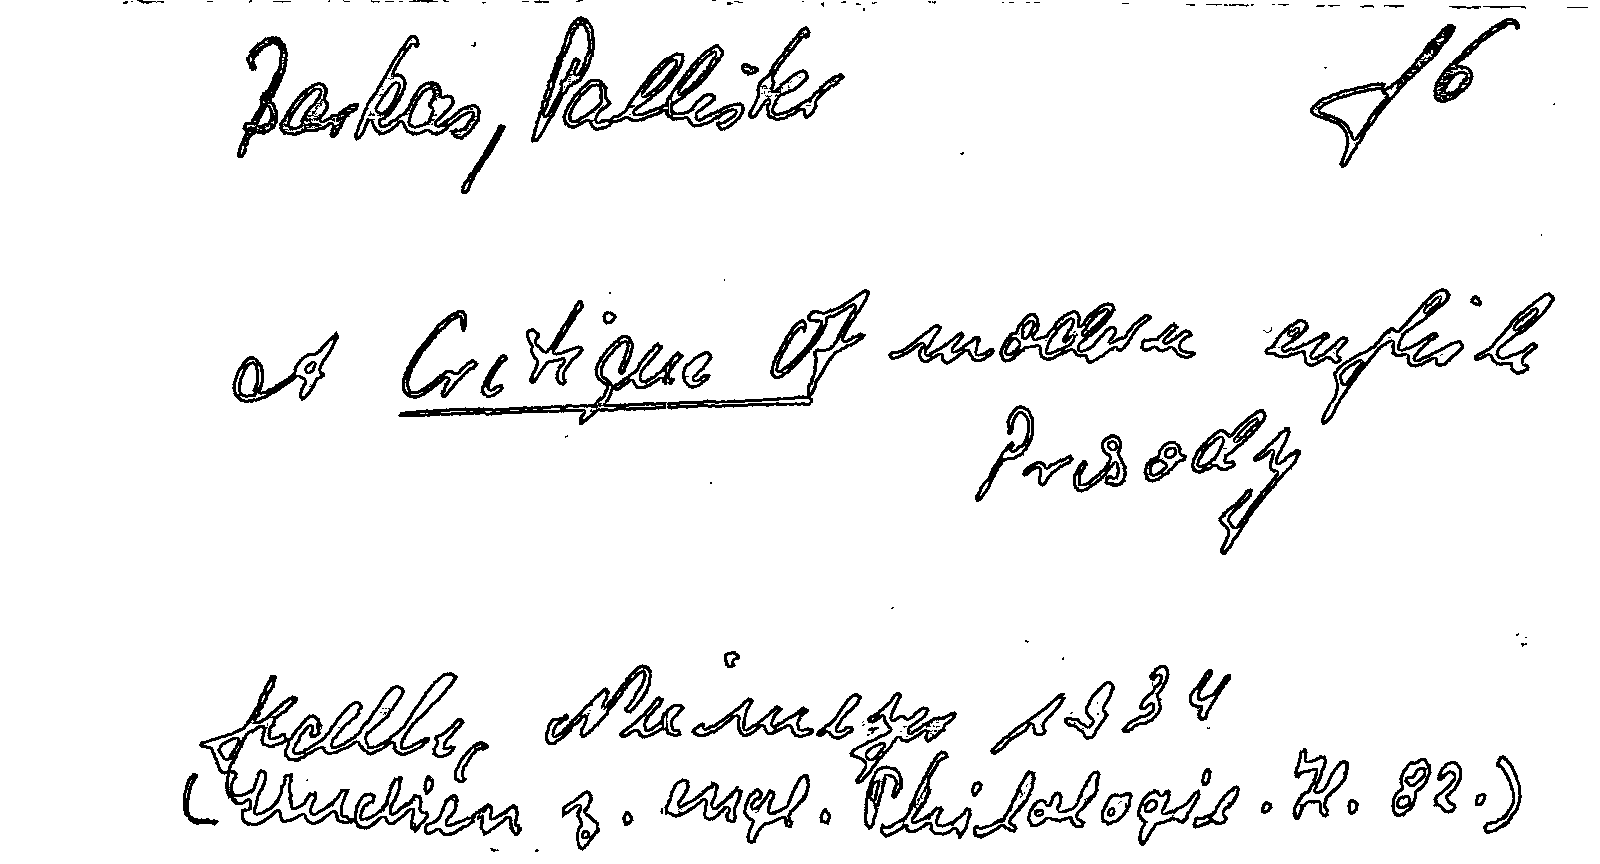 Barkas, Pallister
A Critique of modern english
Prosody
Halle, Niemeyer 1934
(Studien z. engl. Philologie. H. 82.)